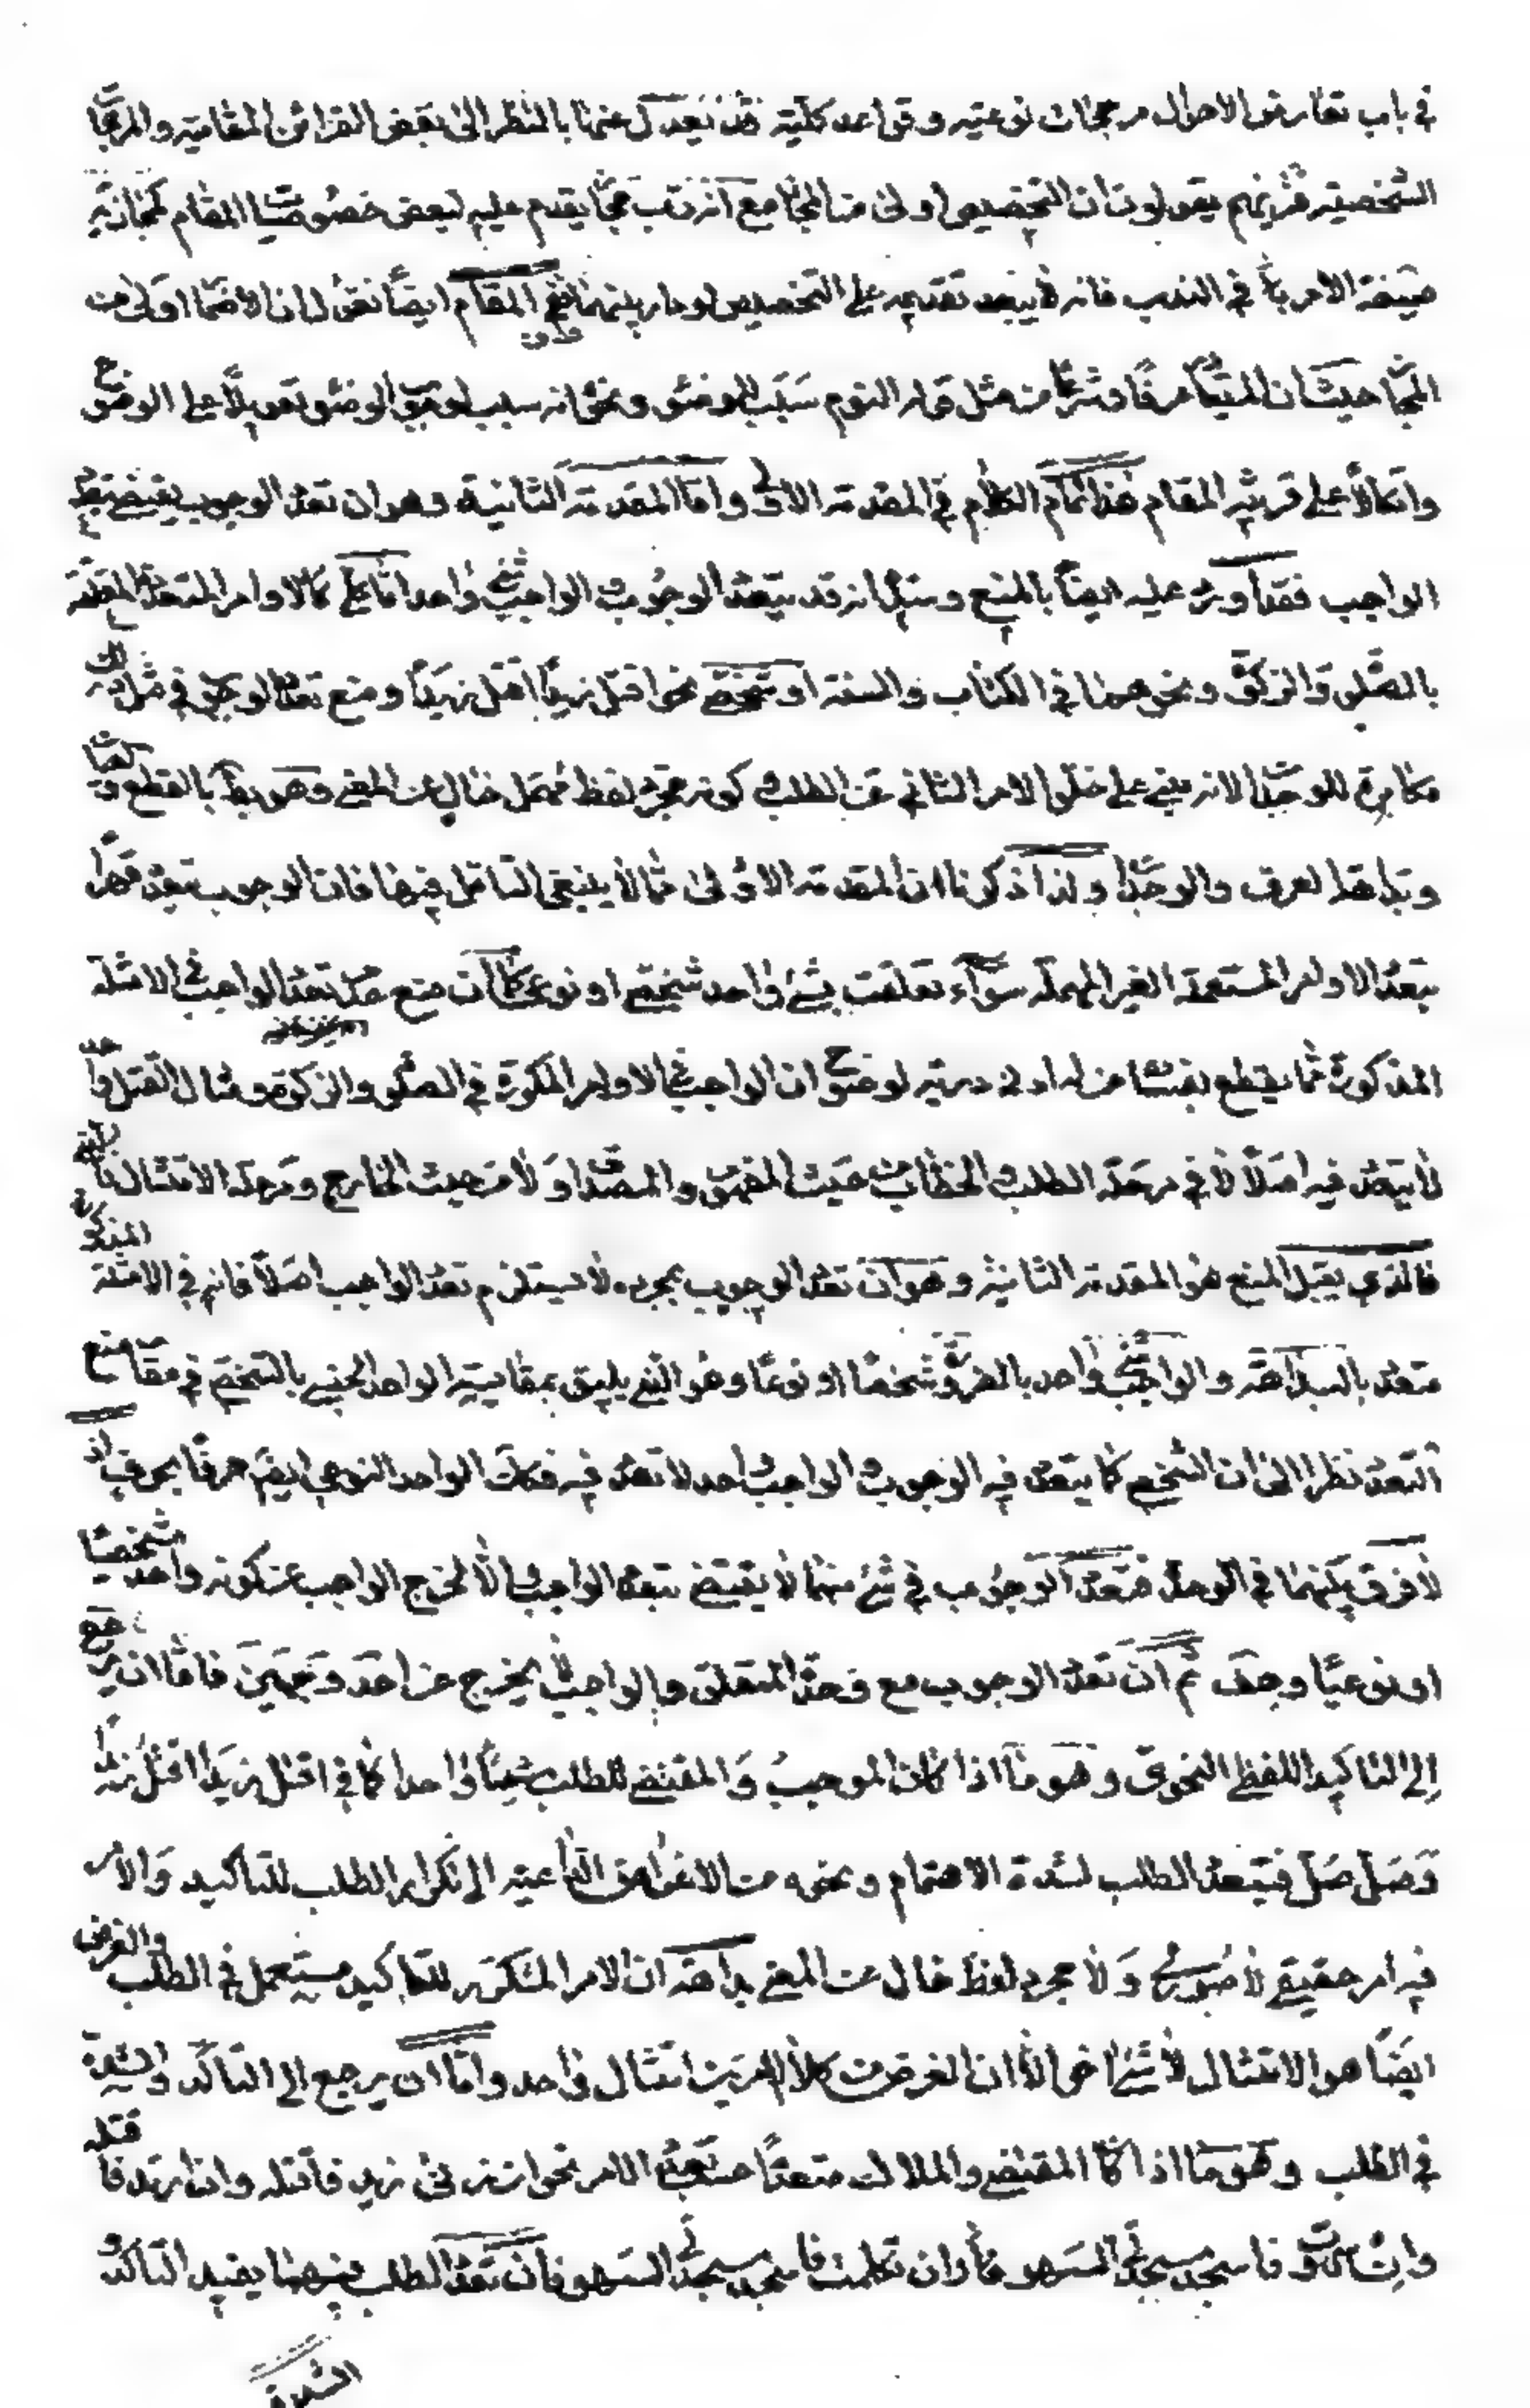 في باب تعارض الاحوال مرجحات نوعيته وقواعد كلية فقد نعدل عنها بالنظر الى بعض القرائن المقامية والمرجحا
الشخصية فتريهم يقولون ان التخصيص اولى من المجا مع انه رب مجا يقدم عليه لبعض خصوصيا المقام كمجازية
صيغة الامر في الندب فانه لا يبعد تقديمه على التخصيص لو دار بينهما ففي المقام ايضا نقول ان الاضما اولى من
المجا حيث ان المتبا عرفا وشرعا من مثل قوله النوم سبب للوضو ونحوه انه سبب لوجوب الوضو تعويلا على الوضوح
واتكالا على قرينة المقام هذا تمام الكلام في المقدمة الاولى واما المقدمة الثانية وهو ان تعدد الوجوب يقتضي تعدد
الواجب فقد اورد عليه ايضا بالمنع وسند انه قد يتعدد الوجوب والواجب شيء واحد اما كلي كالاوامر المتعددة المتعلقة
بالصلوة والزكوة ونحوهما في الكتاب والسنة او شخصي نحو اقتل زيدا اقتل زيدا ومنع تعدد الوجوب في مثل ذلك
مكابرة للوجدان لانه مبني على خلو الامر الثاني عن الطلب وكونه مجرد لفظ مهمل خال عن المعنى وهو بط بالقطع
وبداهة العرف والوجدا ولذا ذكرنا ان المقدمة الاولى مما لا ينبغي التامل فيها فان الوجوب يتعدد قهرا
بتعدد الاوامر المستعملة الغير المهملة سواء تعلقت بشيء واحد شخصي او نوعي كما ان منع عدم تعدد الواجب في الامثلة
المذكورة مما يقطع بفسا من له ادنى دربة لوضوح ان الواجب في الاوامر المذكورة في الصلوة والزكوة ومثال القتل واحد
لا يتعدد فيه اصلا لا في مرحلة الطلب والخطاب من حيث المفهوم والمصداق ولا من حيث الخارج ومرحلة الامتثال
فالذي يقبل المنع هو المقدمة الثانية وهو ان تعدد الوجوب بمجرده لا يستلزم تعدد الواجب اصلا فانه في الامثلة المذكورة
متعدد بالبداهة والواجب شيء واحد بالضرورة شخصا او نوعا وهو الذي يليق بمقايسة الواحد الجنسي بالشخصي في مقام منع
التعدد نظرا الى ان الشخصي كما يتعدد فيه الوجوب والواجب واحد لا تعدد فيه فكك الواحد النوعي ايضا حرفا بحرف اذ
لا فرق بينهما في الوحدة فتعدد الوجوب في شيء منهما لا يقتضي تعدد الواجب والا لخرج الواجب عن كونه واحدا شخصيا
او نوعيا وهف ثم ان تعدد الوجوب مع وحدة المتعلق والواجب لا يخرج عن احد وجهين فاما ان يرجع
الى التاكيد اللفظي النحوي وهو ما اذا كان الموجب والمقتضي للطلب شيئا واحدا كما في اقتل زيدا اقتل زيدا
وصل صل فيتعدد الطلب لشدة الاهتمام ونحوه من الاغراض الداعية الى تكرار الطلب للتاكيد والامر
فيه امر حقيقي لا صوري ولا مجرد لفظ خال عن المعنى بداهة ان الامر المتكرر للتاكيد مستعمل في الطلب والغرض
ايضا هو الامتثال لا شيء اخر الا ان الغرض من كلا الامرين امتثال واحد واما ان يرجع الى التاكد والشدة
في الطلب وهو ما اذا كا المقتضي والملاك متعددا حسب تعدد الامر نحو ان زنى زيد فاقتله وان ارتد فاقتله
وان شككت فاسجد سجدتي السهو وان تكلمت فاسجد سجدتي السهو فان تعدد الطلب فيهما يفيد التاكد و
الشدة